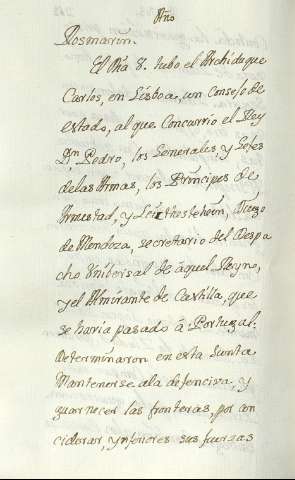 Año
Rosmarin.
El Dia 8. tubo el Archiduque
Carlos, en Lisboa, un Consejo de
estado, al que Concurrio el Rey
Dn. Pedro, los Generales, y Gefes
de las Armas, los Principes de
Armestad, y Leichtestehein, Diego
de Mendoza, secretario del Despa
cho Unibersal de aquel Reyno,
y el Almirante de Castilla, que
se haria pasado â Portugal.
Determinaron en esta Junta
Mantenerse ala defenciva, y
guarnecer las fronteras, por con
ciderar, ynferiores sus fuerzas